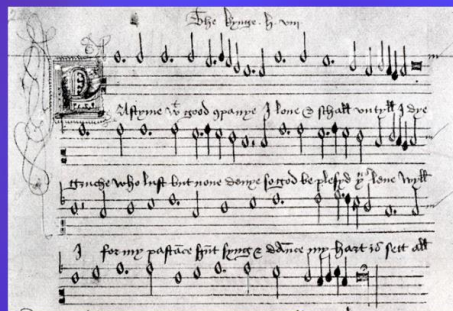 The kynge . h . viii
Pastyme wt good companye I loue & schall vntyll I dye
gruche who lust but none denye so god be plesyd thus leue wyll
I for my pastāce hūt syng & dāce my hart is sett all